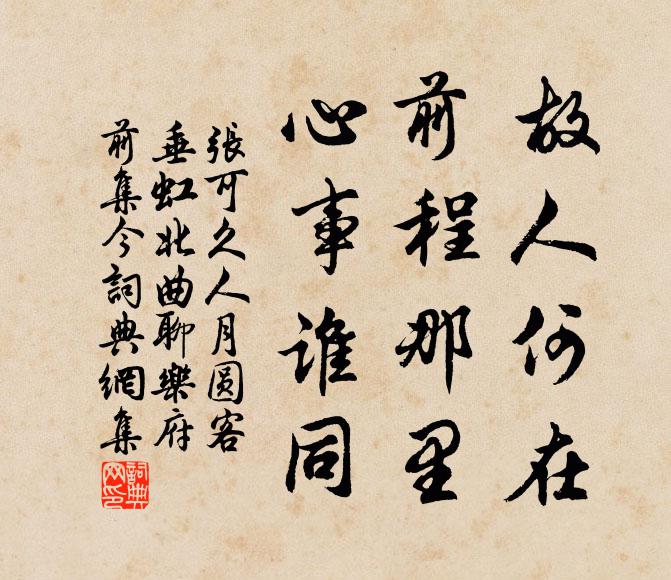 故人何在
前程那里
心事谁同
張可久人月圆客
垂虹北曲聊樂府
前集今詞典網集
詞典网印